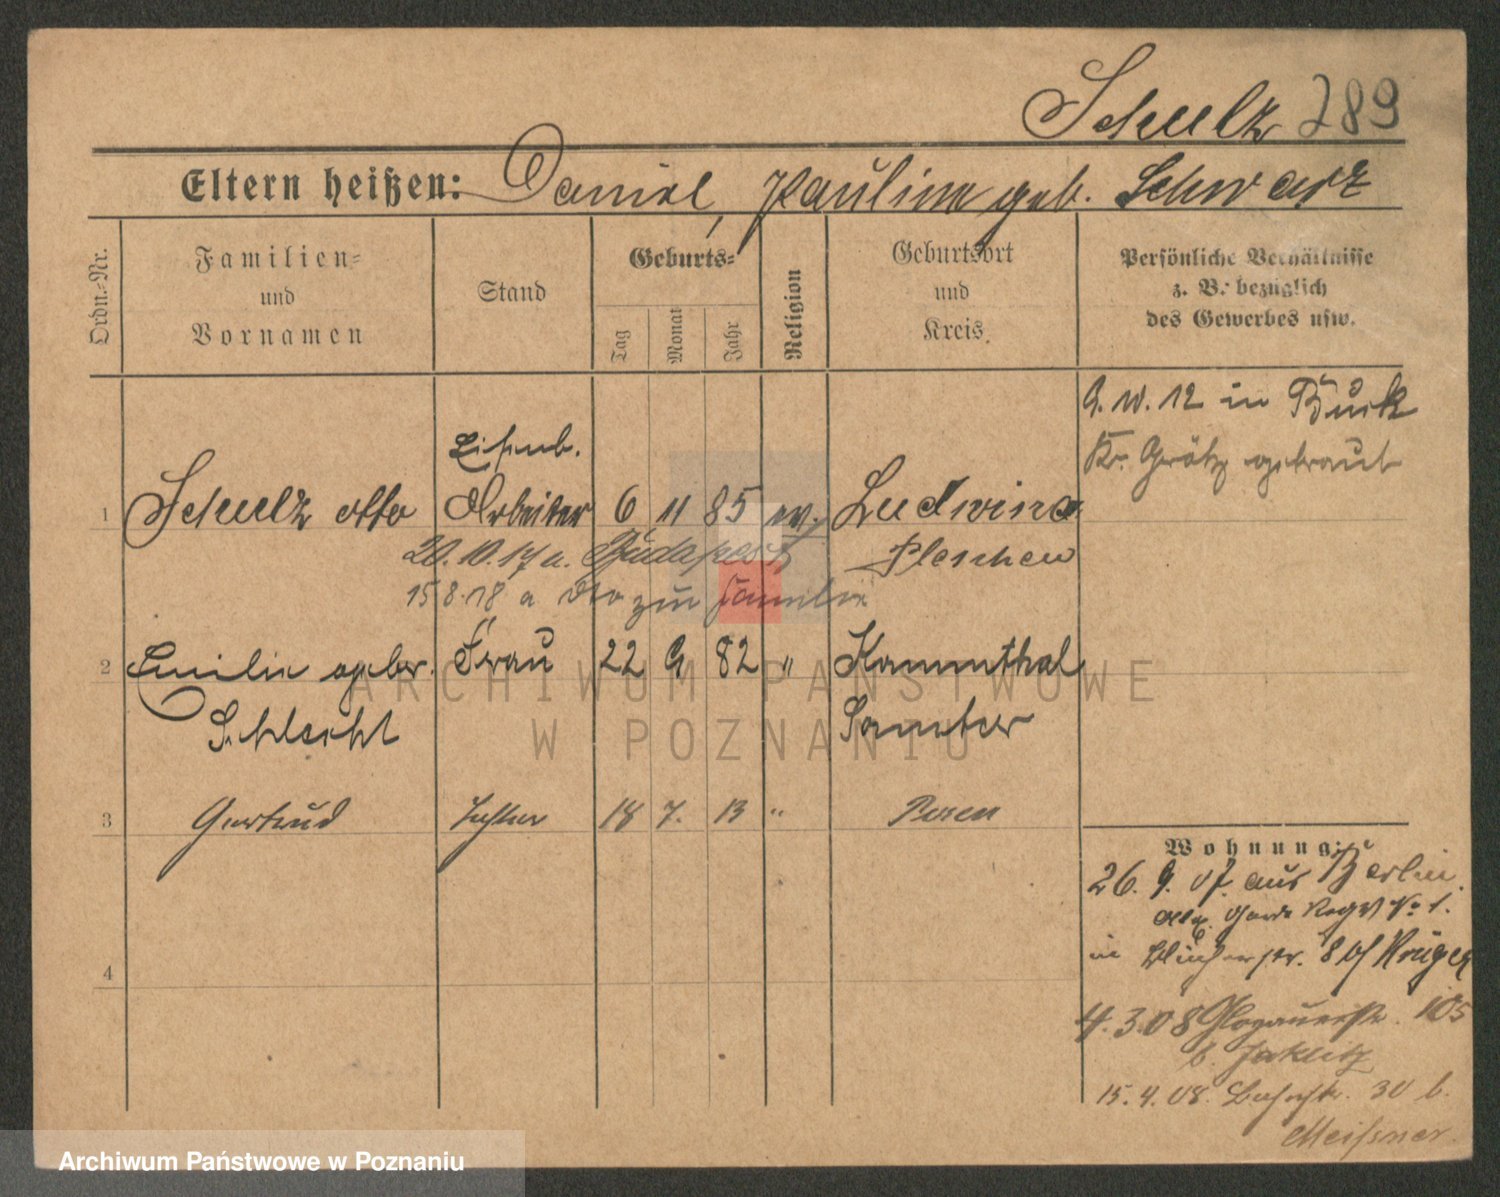 Schulz 289
Eltern heißen: Daniel, Pauline geb. Schwarz
Ordn.-Nr.
Familien-
und
Vornamen
Stand
Geburts-
Tag
Monat
Jahr
Religion
Geburtsort
und
Kreis.
Persönliche Verhältnisse
z. B. bezüglich
des Gewerbes usw.
9. XI. 12 in Buck
Kr. Grätz getraut
Eisenb.
1 Schulz Otto Arbeiter 6 11 85 ev. Ludwina
20.10.17 a. Budapest Pleschen
15.8.18 a zur Familie
2 Emilie geber. Frau 22 9 82 " Kammthal
Schlecht Samter
3 Gertrud Tochter 18 7. 13 " Posen
Wohnung:
26. 9. 07. aus Berlin.
Alex. Garde Regt No 1.
4
in Blücherstr. 8 b/ Krüger
4.3.08 Glogauerstr. 105
b.
15.4.08. Bahnstr. 30 b.
Meißner.
ARCHIWUM PAŃSTWOWE
W POZNANIU
Archiwum Państwowe w Poznaniu